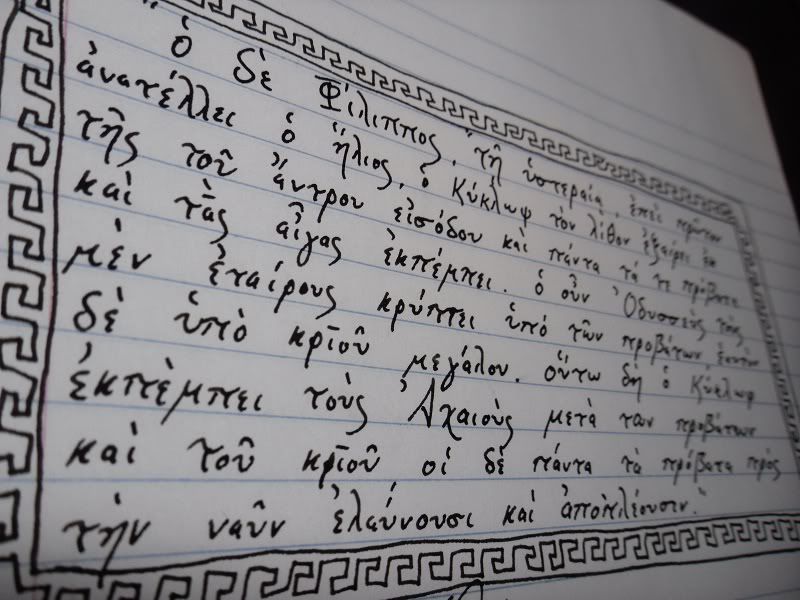 “ὁ δὲ Φίλιππος, “τῇ ὑστεραίᾳ, ἐπεὶ πρῶτον
ἀνατέλλει ὁ ἥλιος, ὁ Κύκλωψ τὸν λίθον ἐξαίρει ἐκ
τῆς τοῦ ἄντρου εἰσόδου καὶ πάντα τά τε πρόβατα
καὶ τὰς αἶγας ἐκπέμπει. ὁ οὖν Ὀδυσσεὺς τοὺς
μὲν ἑταίρους κρύπτει ὑπὸ τῶν προβάτων, ἑαυτὸν
δὲ ὑπὸ κρῑοῦ μεγάλου. οὕτω δὴ ὁ Κύκλωψ
ἐκπέμπει τοὺς Ἀχαιοὺς μετὰ τῶν προβάτων
καὶ τοῦ κρῑοῦ οἱ δὲ πάντα τὰ πρόβατα πρὸς
τὴν ναῦν ἐλαύνουσι καὶ ἀποπλέουσιν.”